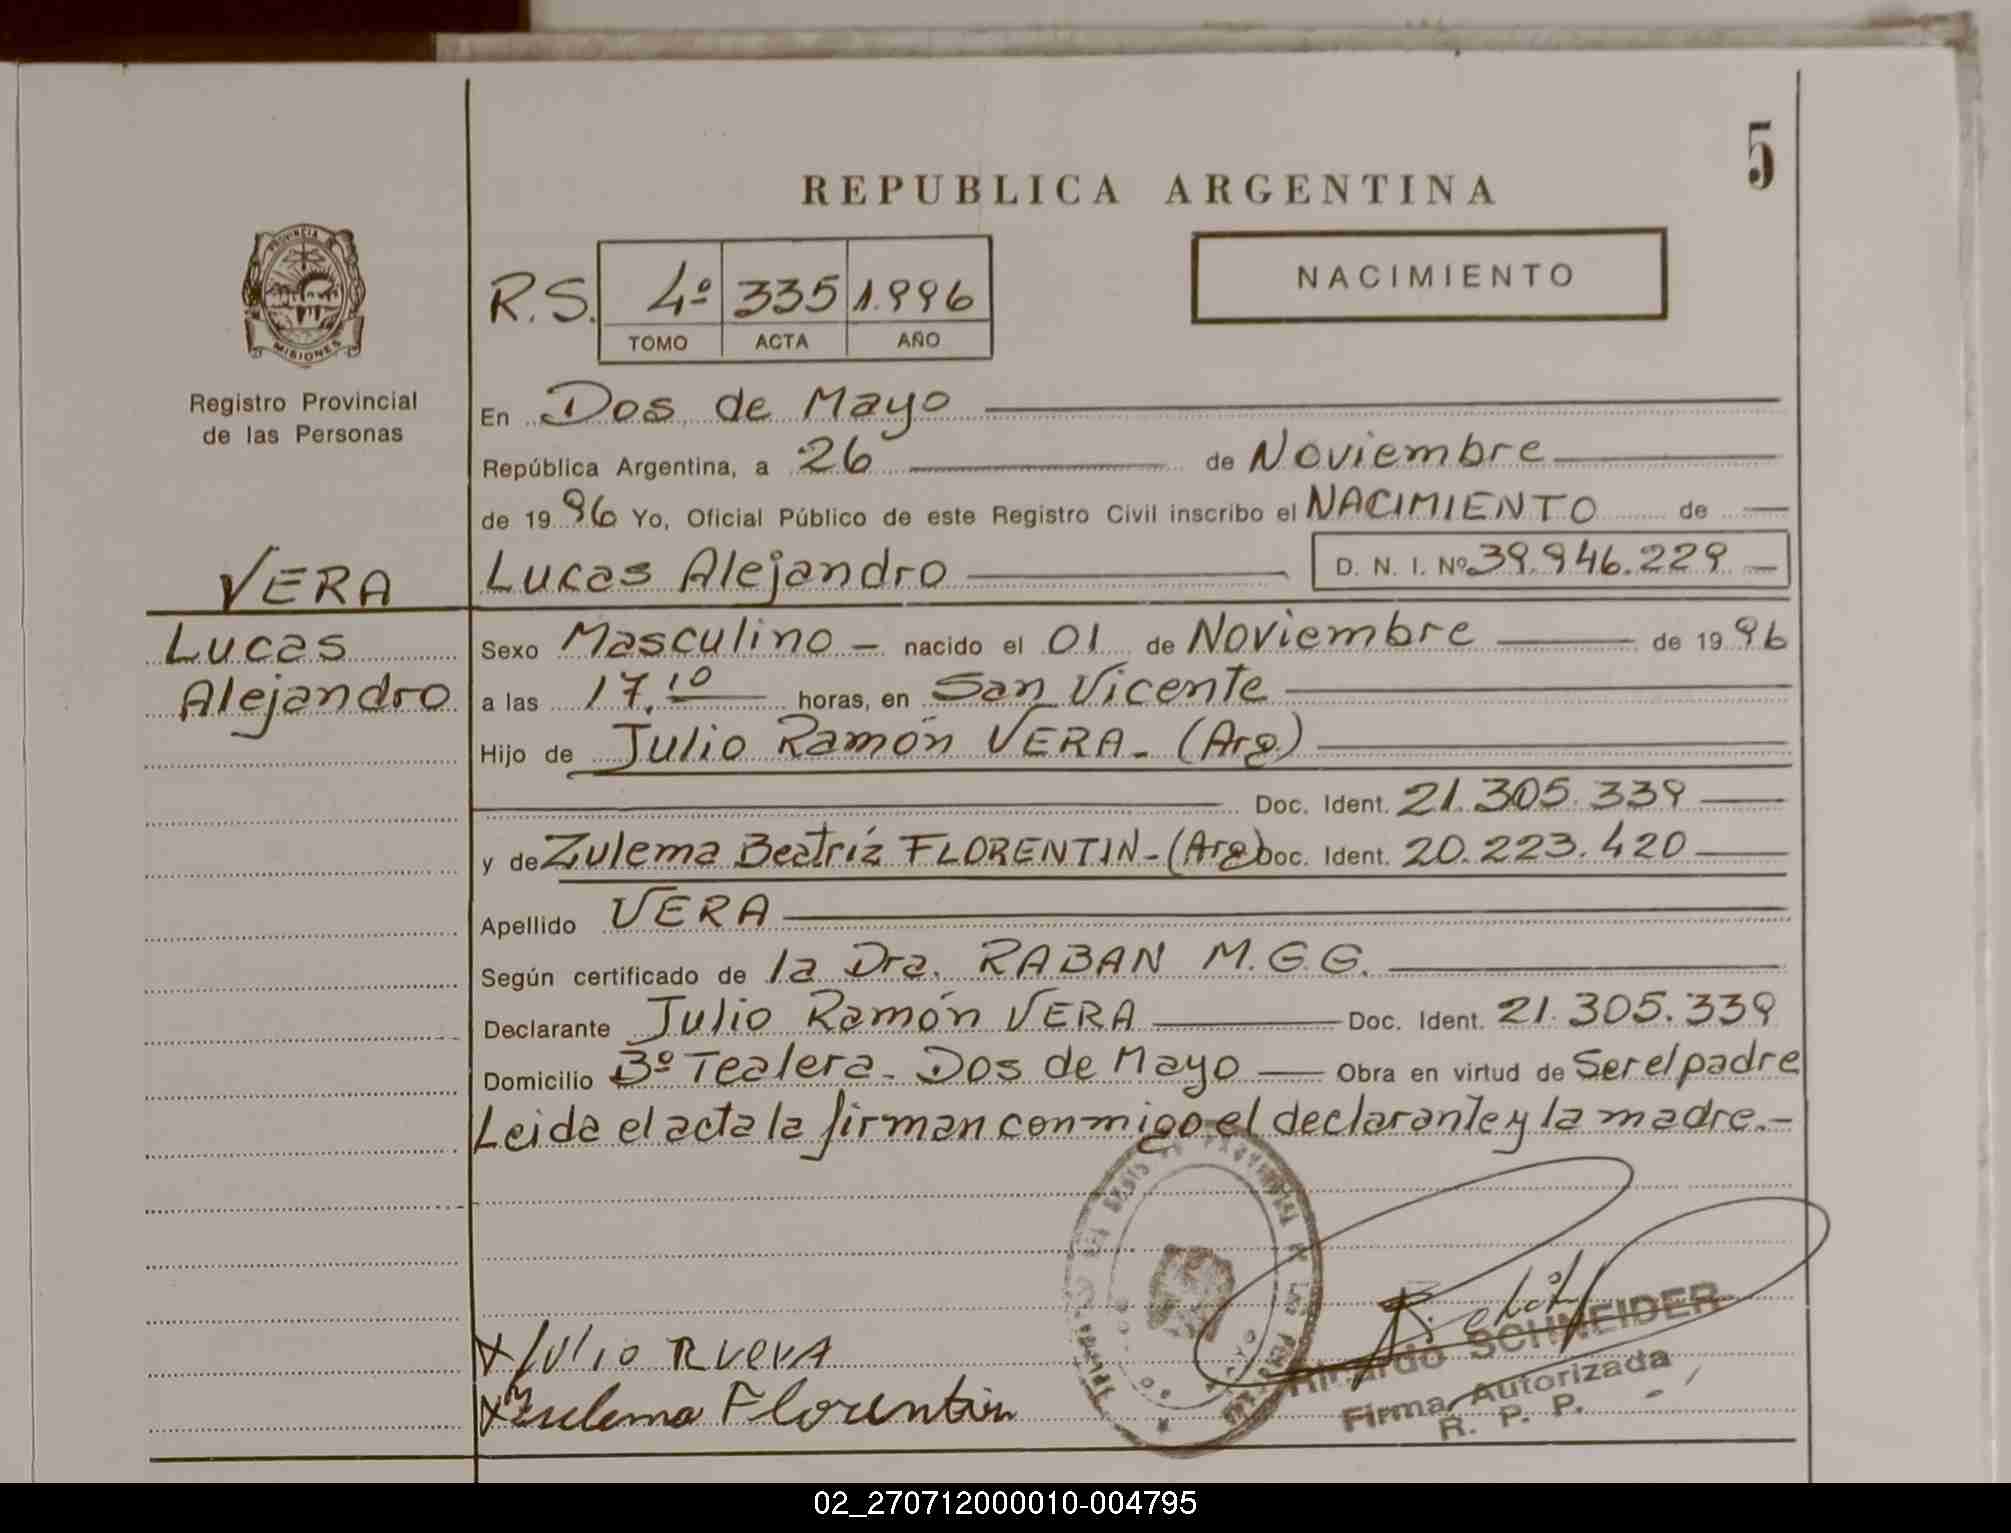 5
REPUBLICA ARGENTINA
PROVINCIA DE
MISIONES
Registro Provincial
de las Personas
NACIMIENTO
R.S. 4º 335 1.996
TOMO ACTA AÑO
En Dos de Mayo
República Argentina, a 26 de Noviembre
de 1996 Yo, Oficial Público de este Registro Civil inscribo el NACIMIENTO de
VERA
Lucas Alejandro D. N. I. Nº 39.946.229
Lucas
Alejandro
Sexo Masculino - nacido el 01 de Noviembre de 1996
a las 17.10 horas, en San Vicente
Hijo de Julio Ramón VERA - (Arg.)
Doc. Ident. 21.305.339
y de Zulema Beatríz FLORENTIN - (Arg) Doc. Ident. 20.223.420
Apellido VERA
Según certificado de la Dra. RABAN M.G.G.
Declarante Julio Ramón VERA Doc. Ident. 21.305.339
Domicilio Bº Tealera - Dos de Mayo Obra en virtud de Ser el padre
Leida el acta la firman conmigo el declarante y la madre.-
x Julio R Vera
x Zulema Florentin
Ricardo SCHNEIDER
Firma Autorizada
R. P. P.
02_270712000010-004795